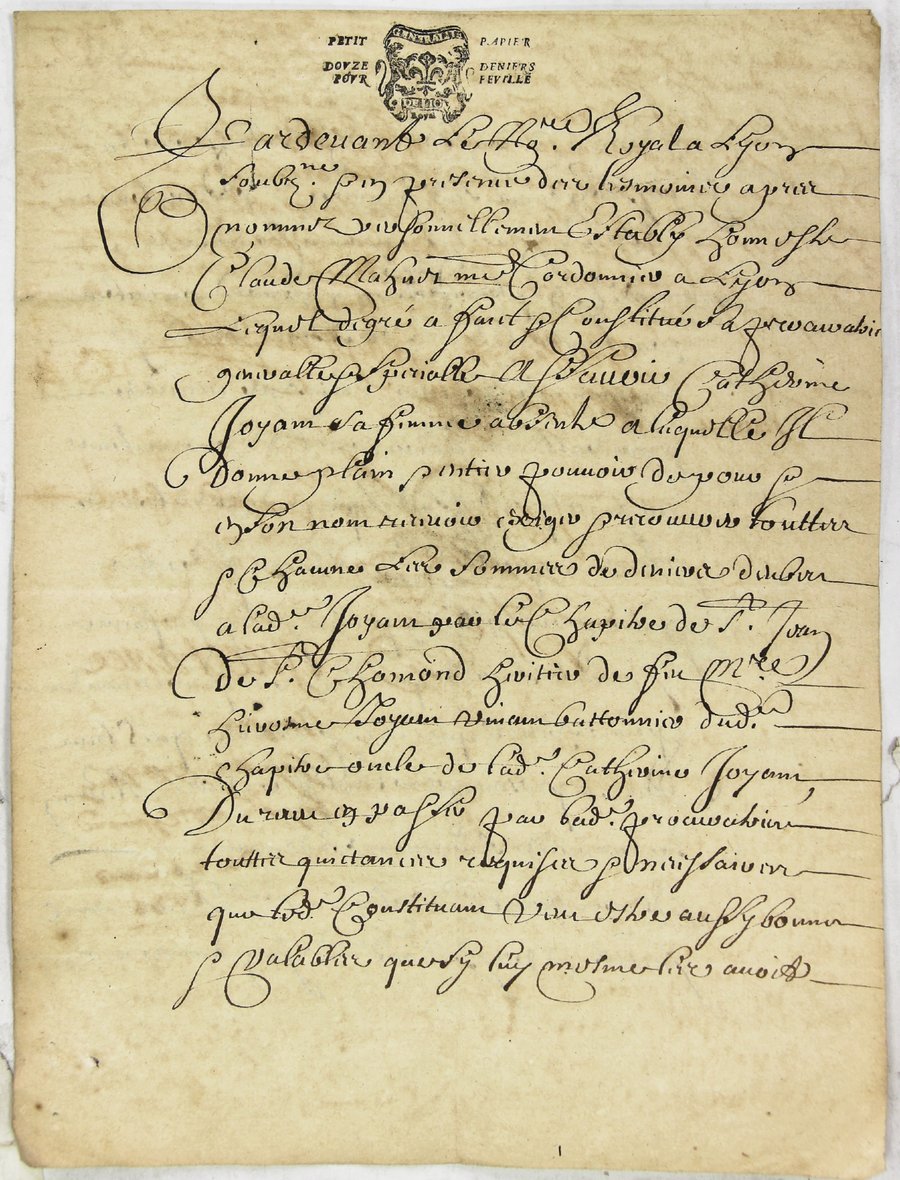 PETIT PAPIER
DOVZE DENIERS
POVR FEVILLE
GENERALITE
DE LION
Pardevant Le No.re Royal a Lyon
soubz.ne & en presence des tesmoins apres
nommez personnellement Estably honneste
Claude Mahuet me Cordonnier a Lyon
Lequel de gré a faict & Constitué sa procuratrice
generalle & specialle A sçavoir Catherine
Joyant sa femme absente a laquelle Il
Donne plain & entier pouvoir de pour &
en son nom recevoir exiger & recouvrer touttes
& Chacune Les sommes de deniers deubes
a lad.e Joyant par le Chapitre de St. Jean
De St. Chamond heritier de feu Mre
hierosme Joyant vivant bastonnier dud.
chapitre oncle de lad.e Catherine Joyant
Du receu en passer par lad.e procuratrice
touttes quictances requises & necessaires
que led. Constituant veut estre aussy bonnes
& Valables que sy luy mesme les avoit